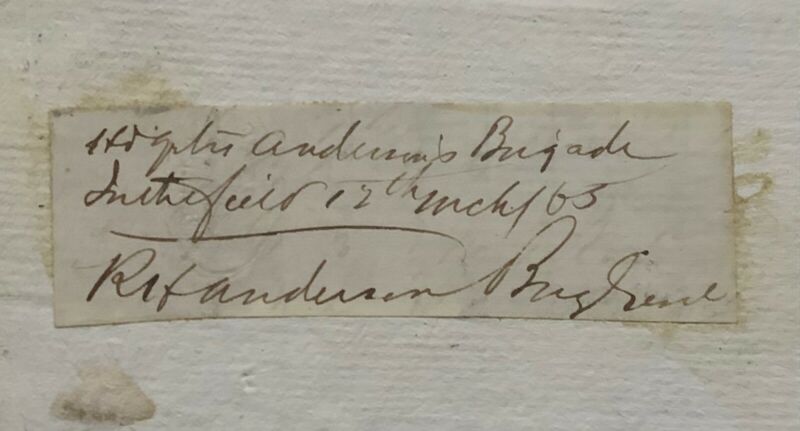 Hdqtrs Anderson's Brigade
In the field 12th Mch/65
R H Anderson Brig Genl